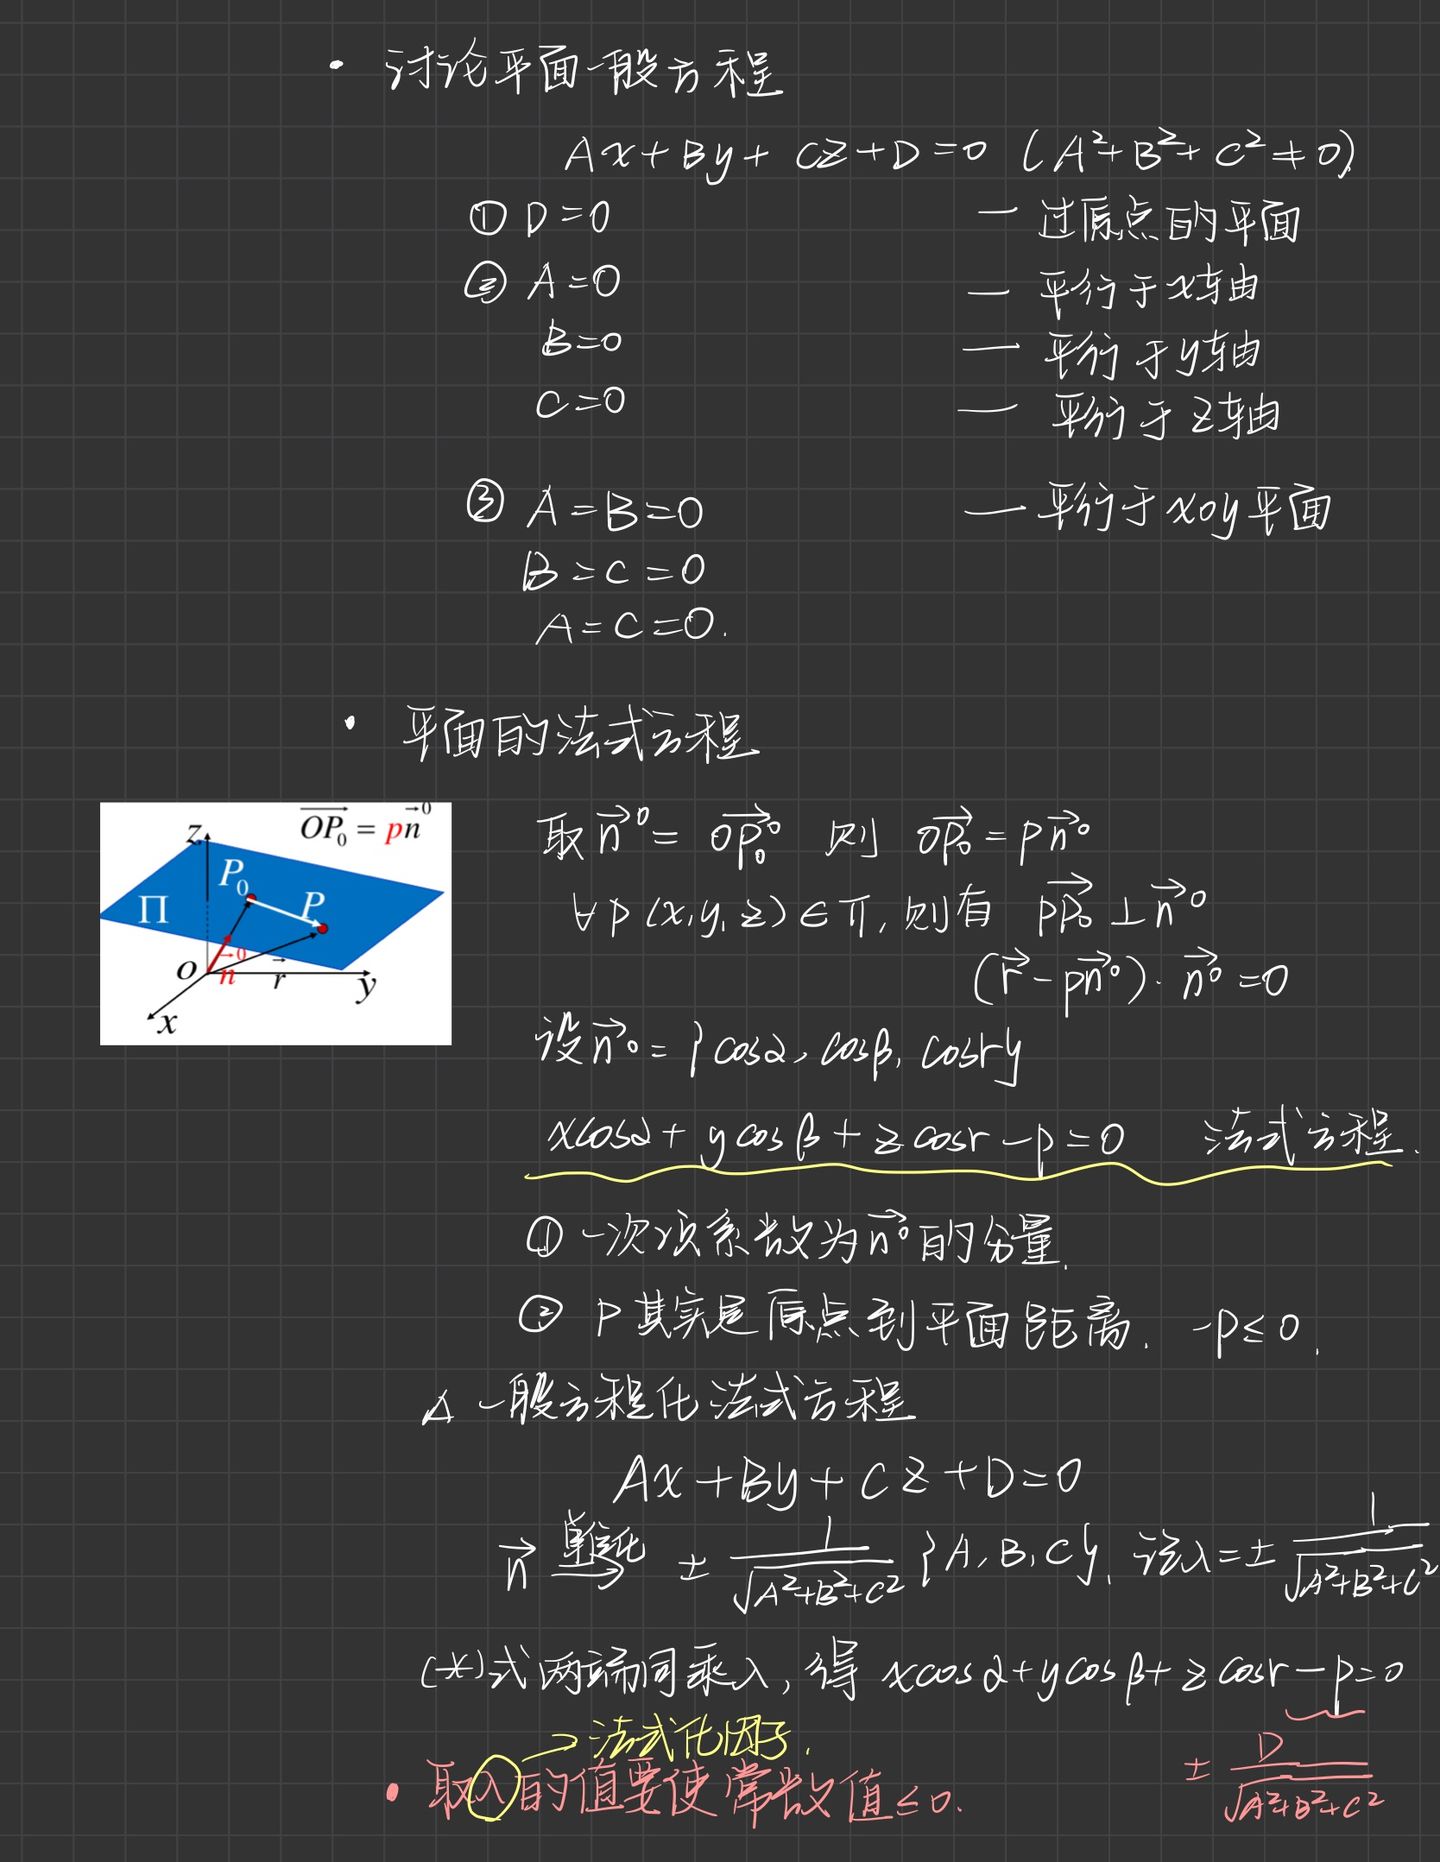 • 讨论平面一般方程
Ax+By+Cz+D=0 (A²+B²+C²≠0)
① D=0 — 过原点的平面
② A=0 — 平行于x轴
B=0 — 平行于y轴
C=0 — 平行于z轴
③ A=B=0 — 平行于xoy平面
B=C=0
A=C=0.
• 平面的法式方程
取 n⃗⁰ = OP₀⃗⁰ 则 OP₀⃗ = pn⃗⁰
∀P(x,y,z)∈π, 则有 PP₀⃗ ⊥ n⃗⁰
(r⃗-pn⃗⁰)·n⃗⁰=0
OP₀⃗ = pn⃗⁰
z
P₀
P
Π
O
n⃗⁰
r⃗
y
x
设n⃗⁰={cosα, cosβ, cosr}
xcosα+ycosβ+zcosr-p=0 法式方程.
① 一次项系数为n⃗⁰的分量.
② P其实是原点到平面距离. -p≤0.
△ 一般方程化法式方程
Ax+By+Cz+D=0
n⃗ 单位化→ ± 1/√(A²+B²+C²) {A,B,C}, 记λ=± 1/√(A²+B²+C²)
(*)式两端同乘λ, 得 xcosα+ycosβ+zcosr-p=0
→法式化因子.
± D/√(A²+B²+C²)
• 取λ的值要使常数值≤0.